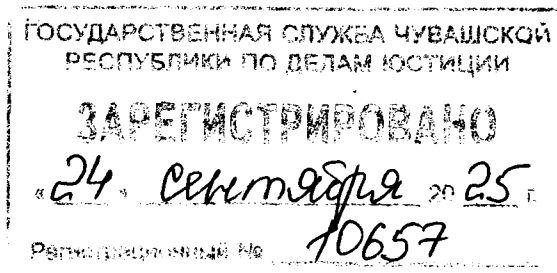 ГОСУДАРСТВЕННАЯ СЛУЖБА ЧУВАШСКОЙ
РЕСПУБЛИКИ ПО ДЕЛАМ ЮСТИЦИИ
ЗАРЕГИСТРИРОВАНО
«24» сентября 2025 г.
Регистрационный № 10657